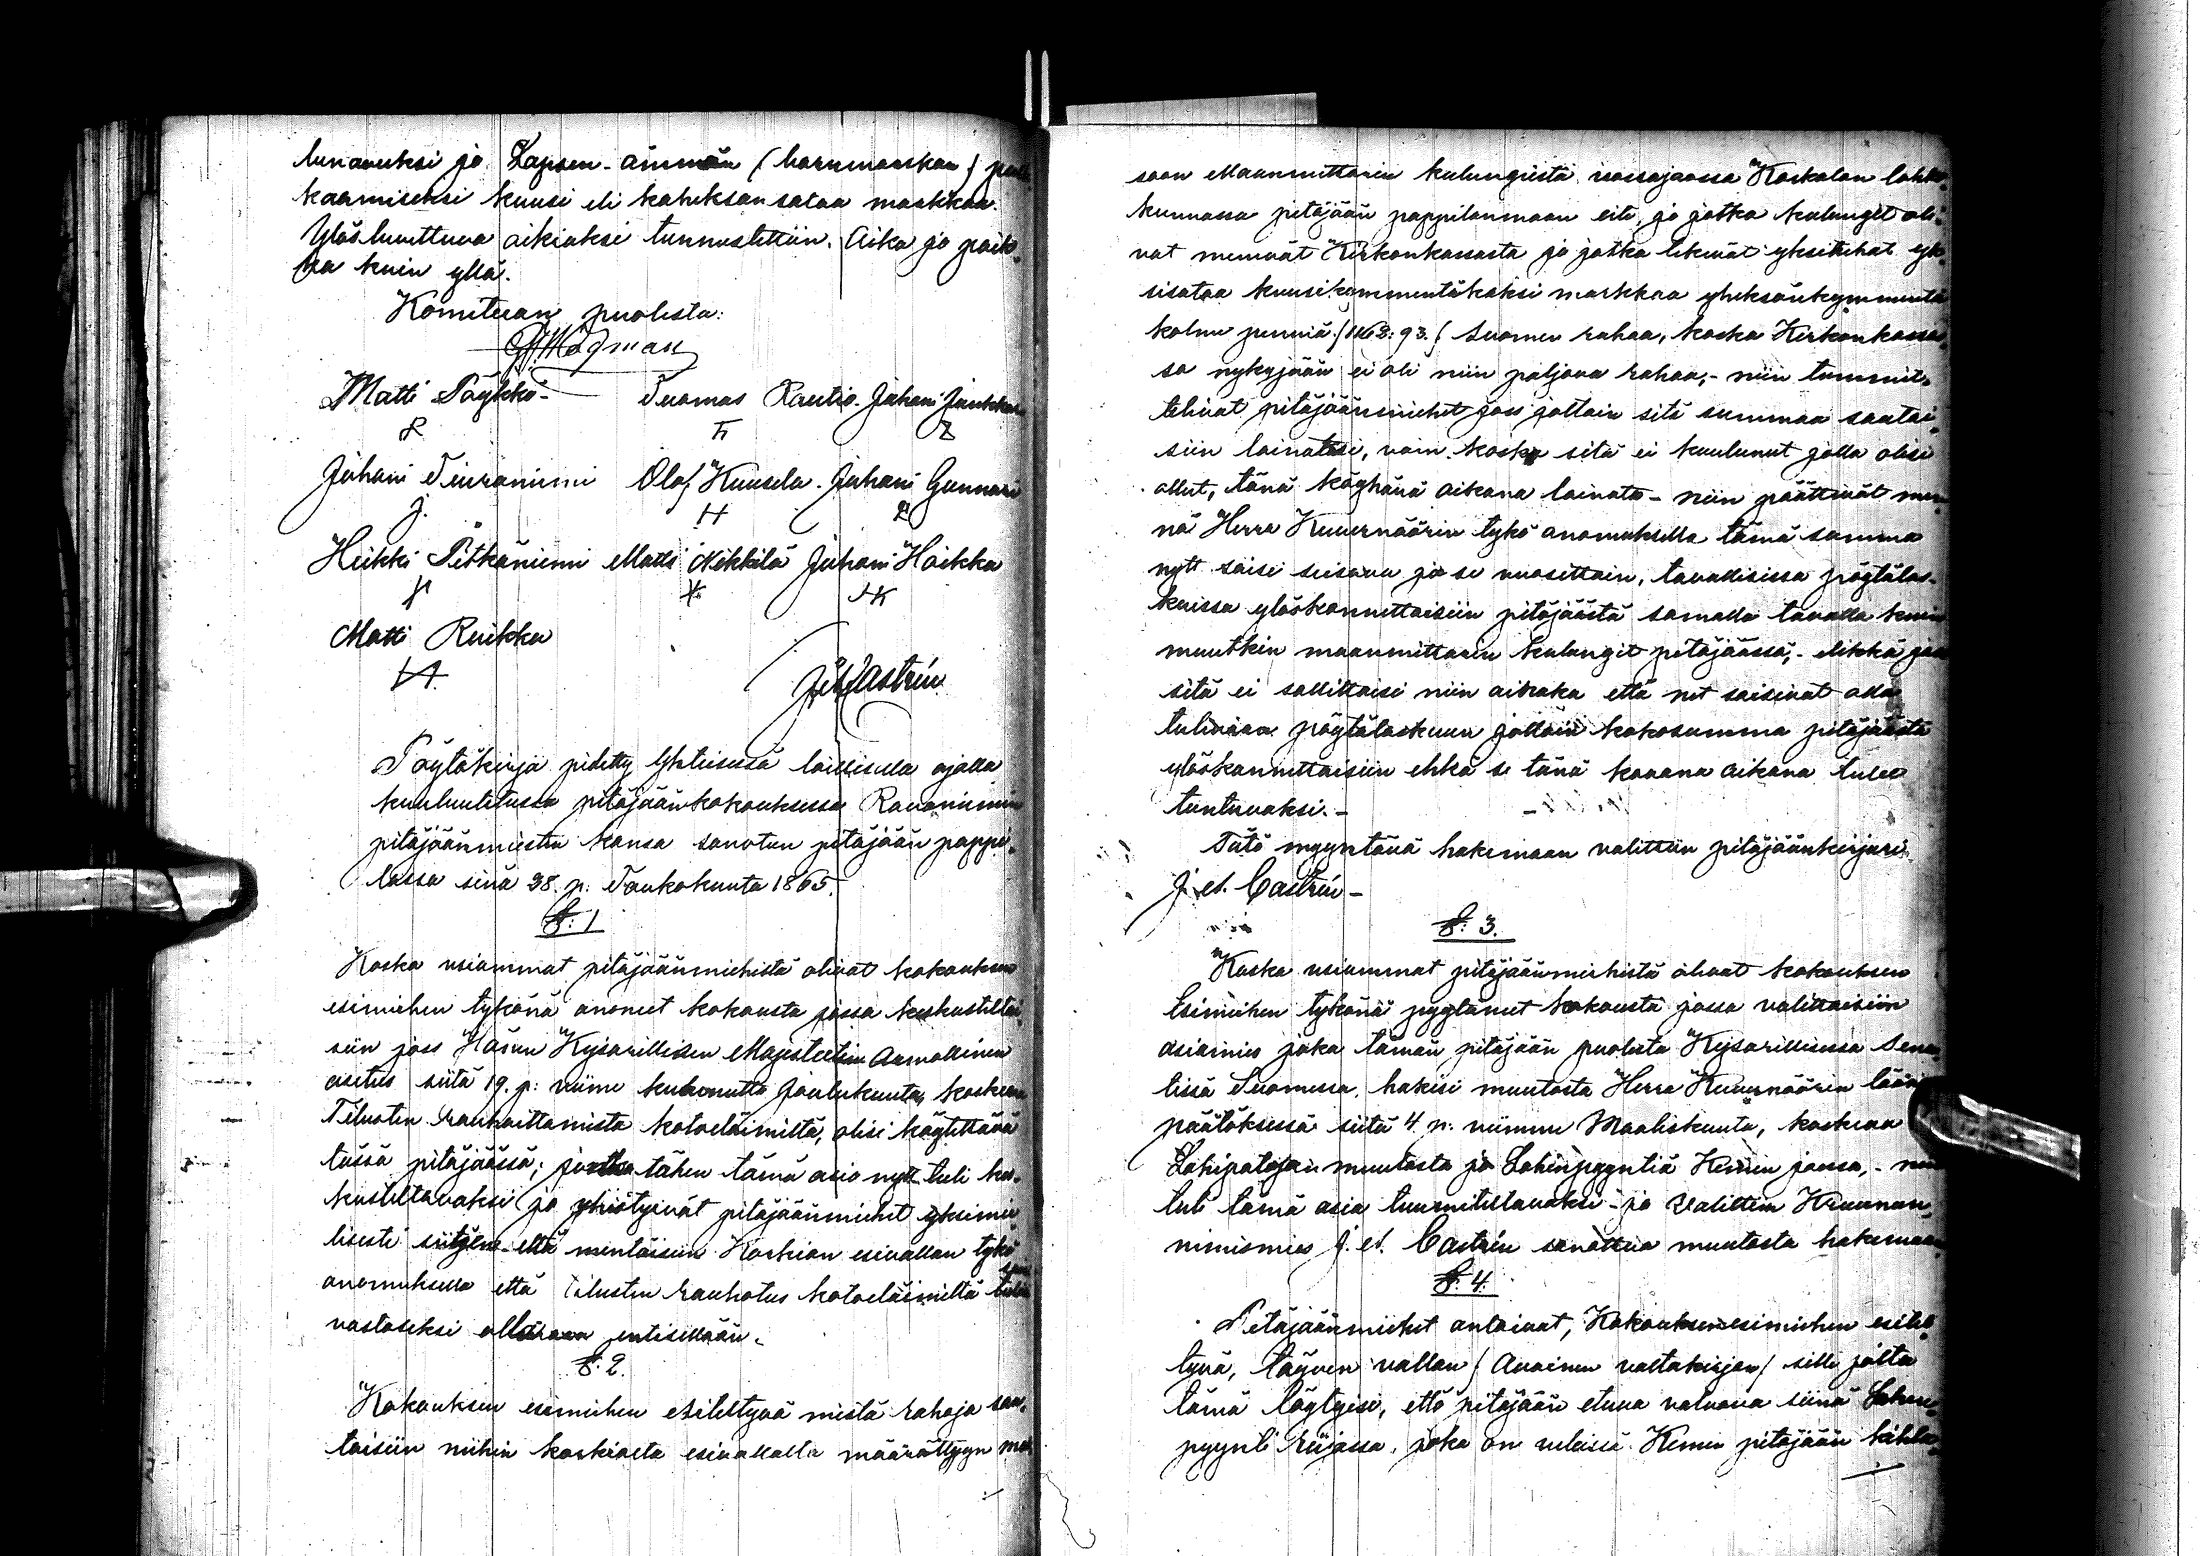 lunavuksi ja Lapsen-ämmän (barnmorskan)
kaamiseksi kuusi eli kaheksansataa markkaa.
Ylösluettuna oikiaksi tunnustettiin. Aika ja paik-
ka kuin yllä.
Komitean puolesta:
Matti Pöykkö- Tuomas Rautio. Juhani Junkkari
Juhani Teuraniemi Olof Kuusela. Juhani Gunnari
J. H
Heikki Pitkäniemi Matti Nikkilä Juhani Hoikka
Matti Ruikka
J. et. Castrén
Pöytäkirja pidetty Yhteisessä laillisella ajalla
kuulutetussa pitäjäänkokouksessa Rovaniemen
pitäjäänmiesten kansa sanotun pitäjään pappi-
lassa sinä 28. p: Toukokuuta 1865.
§. 1
Koska usiammat pitäjäänmiehistä olivat kokouksen
esimiehen tykönä anoneet kokousta jossa keskusteltai-
siin joss Hänen Kejsarillisen Majesteetin Armollinen
asetus siitä 19. p: viime kulunutta Joulukuuta, koskeva
Tilusten Rauhoittamista kotoeläimiltä, olisi käytettävä
tässä pitäjässä; jonka tähen tämä asia nytt tuli kes-
kusteltavaksi ja yhistyivät pitäjäänmiehet yksimie-
lisesti siitjen- että mentäisiin Korkian esivallan tykö
anomuksella että Tilusten rauhotus kotoeläimiltä
vastaseksi entisellään.
§. 2.
Kokouksen esimiehen esiteltyvä mistä rahoja saa-
taisiin niihin korkialta esivallalta määrättyyn
soon Maanmittarin kulungista isossajaossa Koskalan lohko-
kunnassa pitäjään pappilanmaan eite, ja jotka kulungit oli-
vat menevät Kirkonkassasta ja jotka tekevät yksituhat yk-
sisataa kuusikymmentäkaksi markkaa yheksänkymmentä
kolme penniä (1162:93.) Suomen rahaa, koska Kirkonkassa-
sa nykyjään ei oli niin paljava rahaa,- niin tuumit-
telivat pitäjäänmiehet joss jottain sitä summaa saatai-
siin lainatesi, vain koska sitä ei kuulunut jolla olisi
ollut, tänä köyhänä aikana lainata- niin päättivät men-
nä Herra Kuvernöörin tykö anomuksella tämä summa
nytt saisi seisova ja se vuosittain, tavallisissa pöytälas-
kuissa ylöskannettaisiin pitäjäästä samalla tavalla kuin
muutkin maanmittarin kulungit pitäjäässä;- elikkä joss
sitä ei sallittaisi niin aikoaka että net saisivat olla
tulevaan pöytälaskuun jolloin kokosumma pitäjäästä
ylöskannettaisiin ehkä se tänä kovana aikana tulee
tuntuvaksi.-
Tätä myyntävä hakemaan valittiin pitäjäänkirjuri
J. et. Castrén-
§. 3.
Koska usiammat pitäjäänmiehistä olivat kokouksen
Esimiehen tykönä pyytäneet kokousta jossa valittaisiin
asiamies joka tämän pitäjään puolesta Kejsarillisessa Sena-
tissa Suomessa, hakisi muutosta Herra Kuvernöörin
päätöksessä siitä 4 p: viimme Maaliskuuta, koskeva
Lohipatojen muutosta ja Lohenpyyntiä Kemin joessa,-
tuli tämä asia tuumiteltavaksi- ja Valittiin Kruunun-
nimismies J. et. Castrén sanottua muutosta hakemaan
§. 4.
Pitäjäänmiehet antoivat, Kokouksen esimiehen esitel-
tyvä, täyven vallan (Avoimen valtakirjan) sille jolta
tämä löytyisi, että pitäjään etuva valvova siinä Lohen-
pyynti riijassa, joka on veleissä Kemin pitäjään